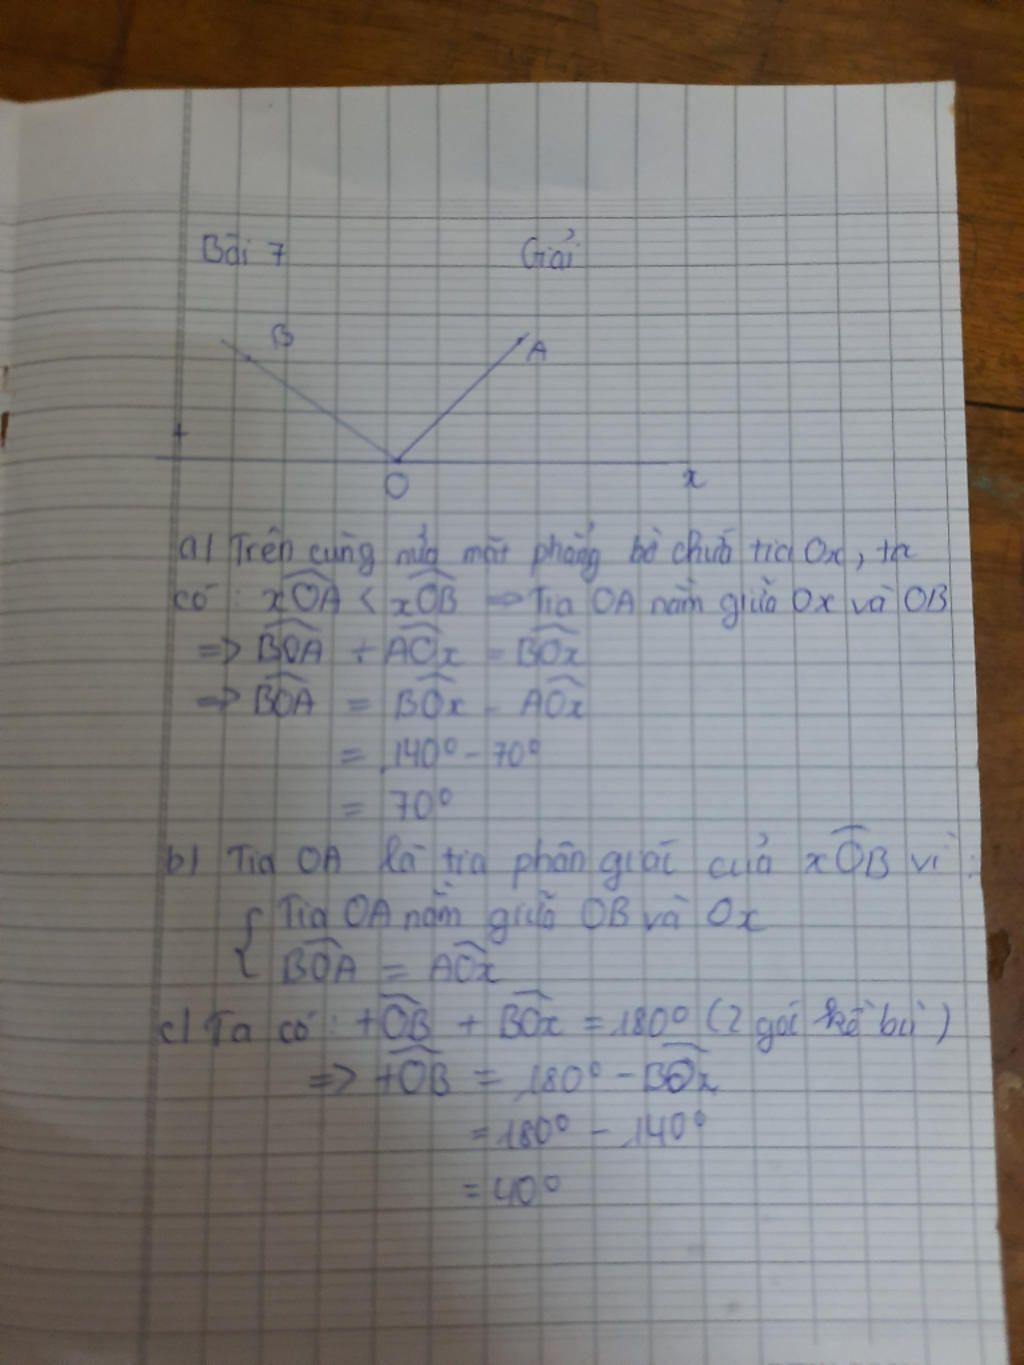 Bài 7 Giải
B
A
t
O
x
a) Trên cùng nửa mặt phẳng bờ chứa tia Ox, ta
có : xOA < xOB => Tia OA nằm giữa Ox và OB
=> BOA + AOx = BOx
=> BOA = BOx - AOx
= 140° - 70°
= 70°
b) Tia OA là tia phân giác của xOB vì :
{ Tia OA nằm giữa OB và Ox
BOA = AOx
c) Ta có : tOB + BOx = 180° (2 góc kề bù)
=> tOB = 180° - BOx
= 180° - 140°
= 40°